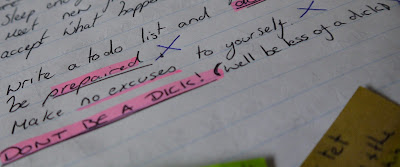 Sleep eno
Meet new
accept what happe
Write a to do list and
be prepaired. X
Make no excuses to yourself... X
DONT BE A DICK! (Well be less of a dick)
tet